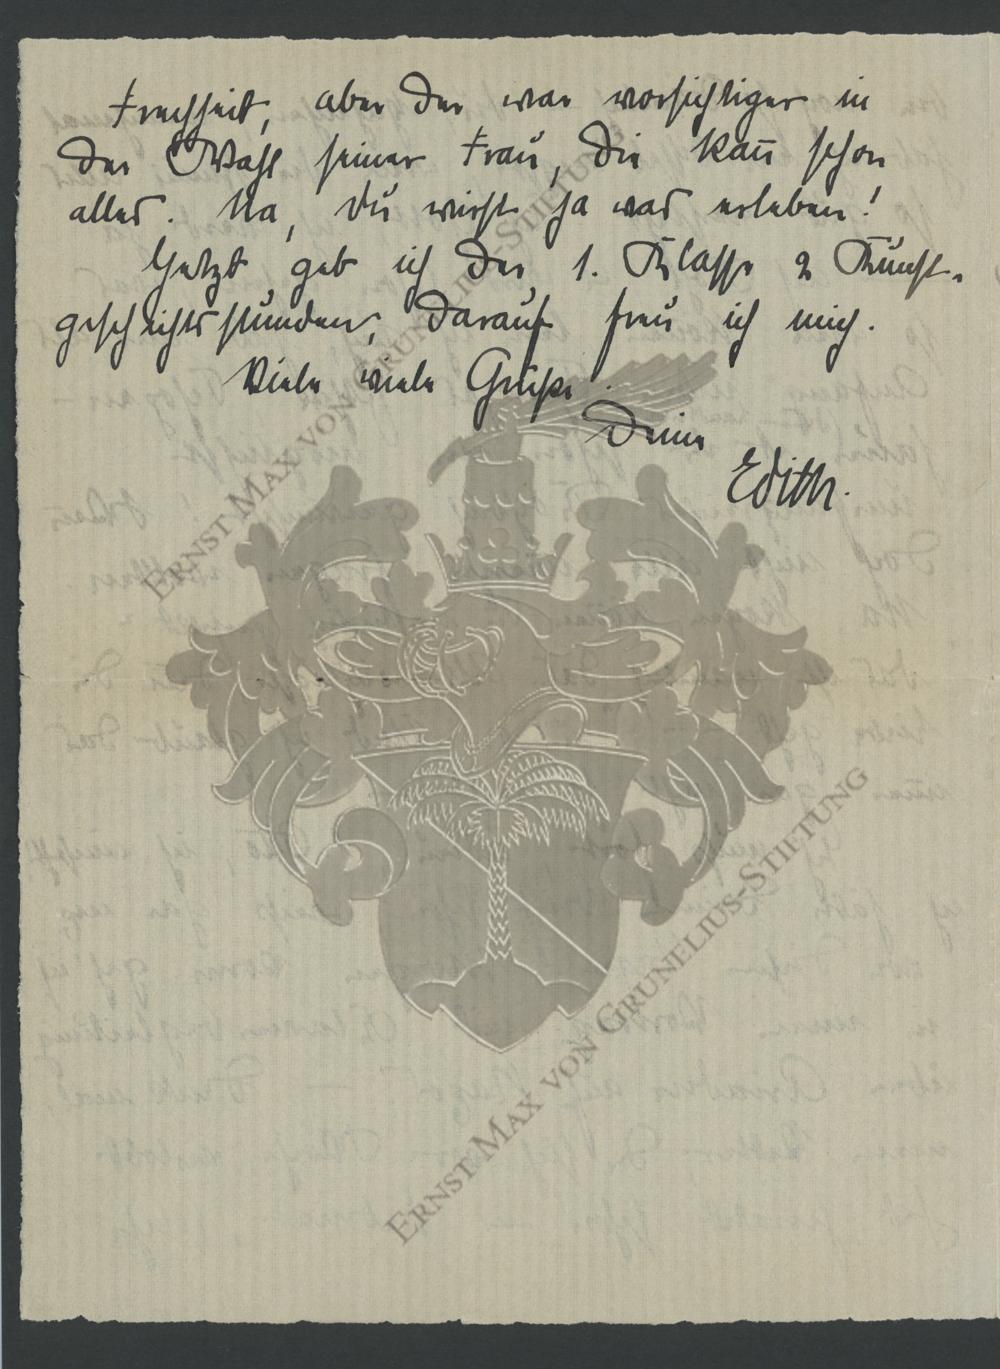 Frechheit, aber der war vorsichtiger in
der Wahl seiner Frau, die kañ schon
alles. Na, Du wirst ja was erleben!
Jetzt geb ich der 1. Klasse 2 Kunst-
geschichtsstunden, darauf freu ich mich.
Viele viele Grüße.
Deine
Edith.
ERNST MAX VON GRUNELIUS-STIFTUNG
ERNST MAX VON GRUNELIUS-STIFTUNG